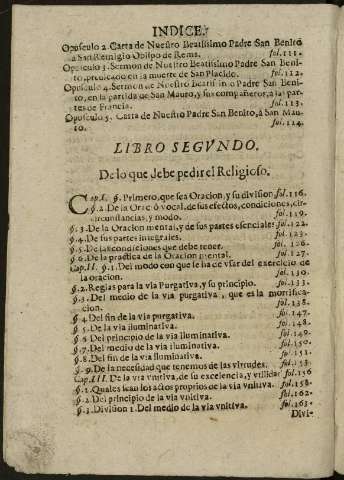 INDICE.
Opusculo 2. Carta de Nuestro Beatissimo Padre San Benito
a San Remigio Obispo de Rems. fol. 111.
Opusculo 3. Sermon de Nuestro Beatissimo Padre San Beni-
to, predicado en la muerte de San Placido. fol. 112.
Opusculo 4. Sermon de Nuestro Beatissimo Padre San Beni-
to, en la partida de San Mauro, y sus compañeros, a las par-
tes de Francia. fol. 113.
Opusculo 5. Carta de Nuestro Padre San Benito, à San Mau-
ro. fol. 114.
LIBRO SEGVNDO.
De lo que debe pedir el Religioso.
Cap. I. §. Primero, que sea Oracion, y su division. fol. 116.
§. 2. De la Oraciõ vocal, de sus efectos, condiciones, cir-
cunstancias, y modo. fol. 119.
§. 3. De la Oracion mental, y de sus partes esenciales. fol. 122.
§. 4. De sus partes integrales. fol. 123.
§. 5. De las condiciones que debe tener. fol. 126.
§. 6. De la practica de la Oracion mental. fol. 127.
Cap. II. §. 1. Del modo con que se ha de vsar del exercicio de
la oracion. fol. 130.
§. 2. Reglas para la via Purgativa, y su principio. fol. 133.
§. 3. Del medio de la via purgativa, que es la mortifica-
cion. fol. 138.
§. 4. Del fin de la via purgativa. fol. 147.
§. 5. De la via iluminativa. fol. 148.
§. 6. Del principio de la via iluminativa. fol. 149.
§. 7. Del medio de la via iluminativa. fol. 150.
§. 8. Del fin de la via iluminativa. fol. 151.
§. 9. De la necesidad que tenemos de las virtudes. fol. 153.
Cap. III. De la via vnitiva, de su excelencia, y vtilidad fol. 156
§. 1. Quales sean los actos proprios de la via vnitiva. fol. 158.
§. 2. Del principio de la via vnitiva. fol. 162.
§. 3. Division 1. Del medio de la via vnitiva. fol. 163.
Divi-